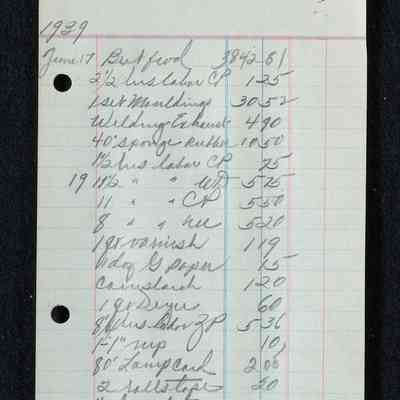 1939
June 17 Brt fwd 3842 61
2 1/2 hrs labor CP 1 25
1 set Mouldings 30 52
Welding Exhaust 4 90
40" sponge rubber 10 50
1 1/2 hrs labor CP 75
19 11 1/2 " " WD 5 75
11 " " CP 5 50
8 " " 5 20
1 qt varnish 1 19
doz G paper 15
Cornstarch 1 20
1 qt Dryer 60
hrs labor ZP 5 36
1-1" 10
80' Lamp cord 2 00
2 rolls tape 20